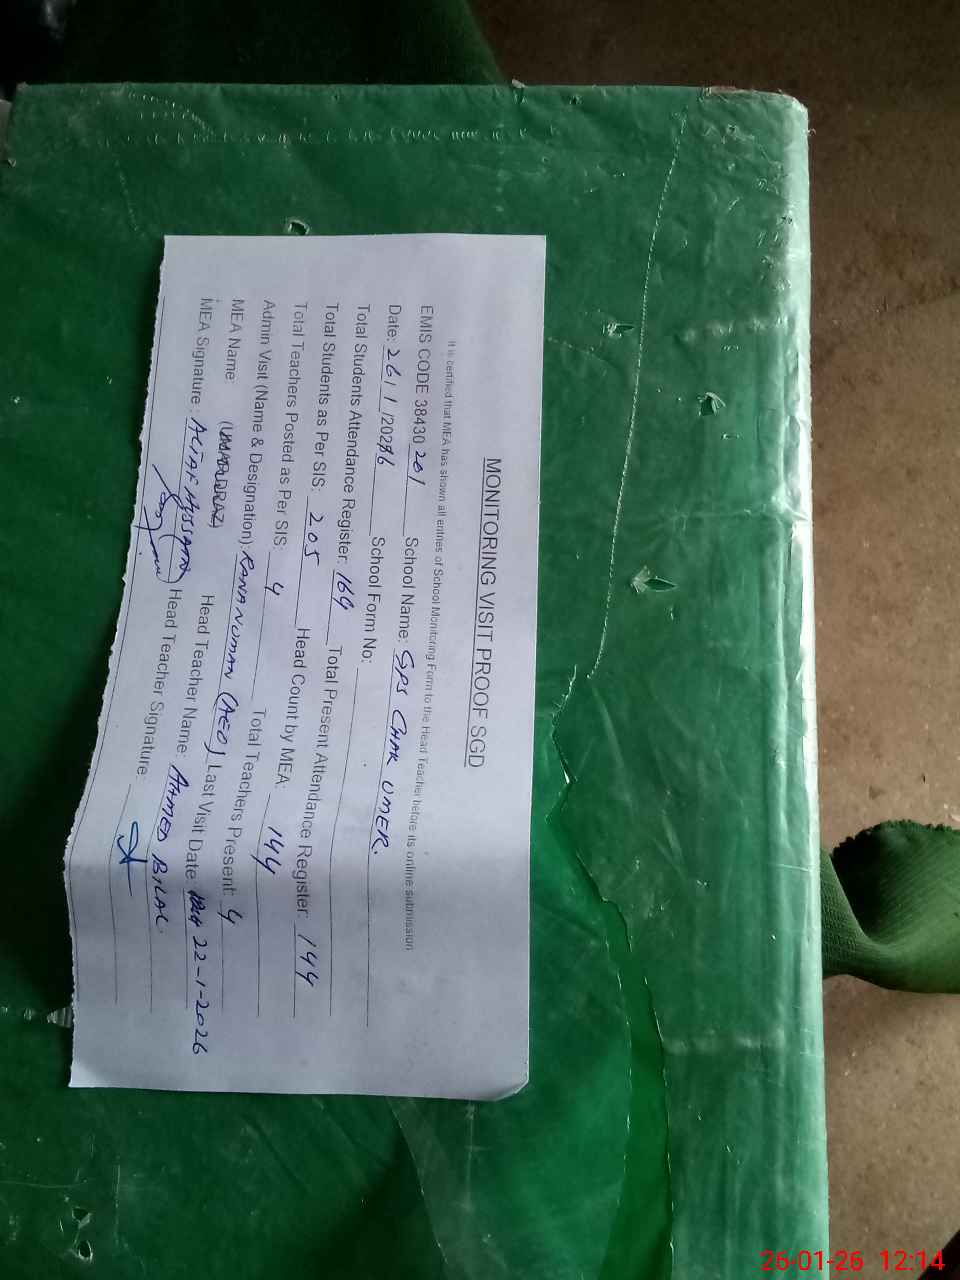 MONITORING VISIT PROOF SGD
It is certified that MEA has shown all entries of School Monitoring Form to the Head Teacher before its online submission
EMIS CODE 38430 201 School Name: GPS CHAK UMER.
Date: 26/1/2026 School Form No:
Total Students Attendance Register: 169 Total Present Attendance Register: 144
Total Students as Per SIS: 205 Head Count by MEA: 144
Total Teachers Posted as Per SIS: 4 Total Teachers Present: 4
Admin Visit (Name & Designation): RANA NOMAN (AEO) Last Visit Date: 22-1-2026
MEA Name: (UMAR DRAZ) Head Teacher Name: AHMED BILAL
MEA Signature: ALTAF HUSSAIN Head Teacher Signature:
26-01-26 12:14